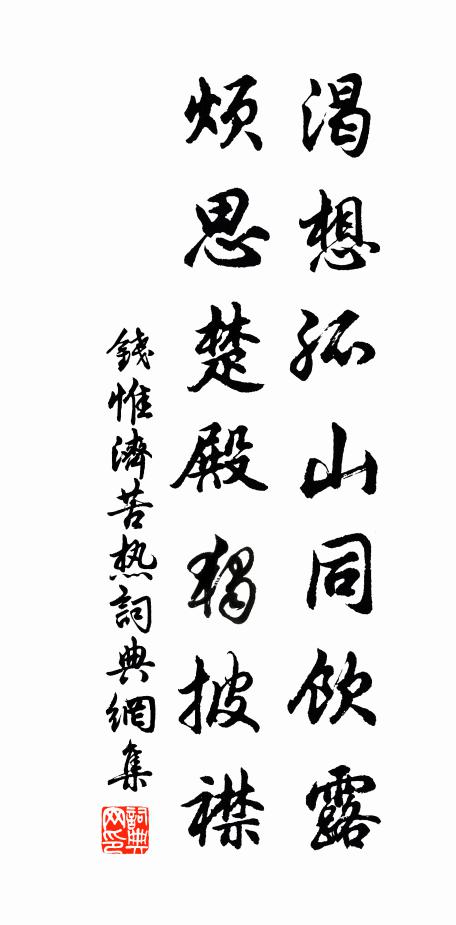 渴想孤山同飲露
煩思楚殿獨披襟
錢惟濟苦熱詞典網集
詞典网印